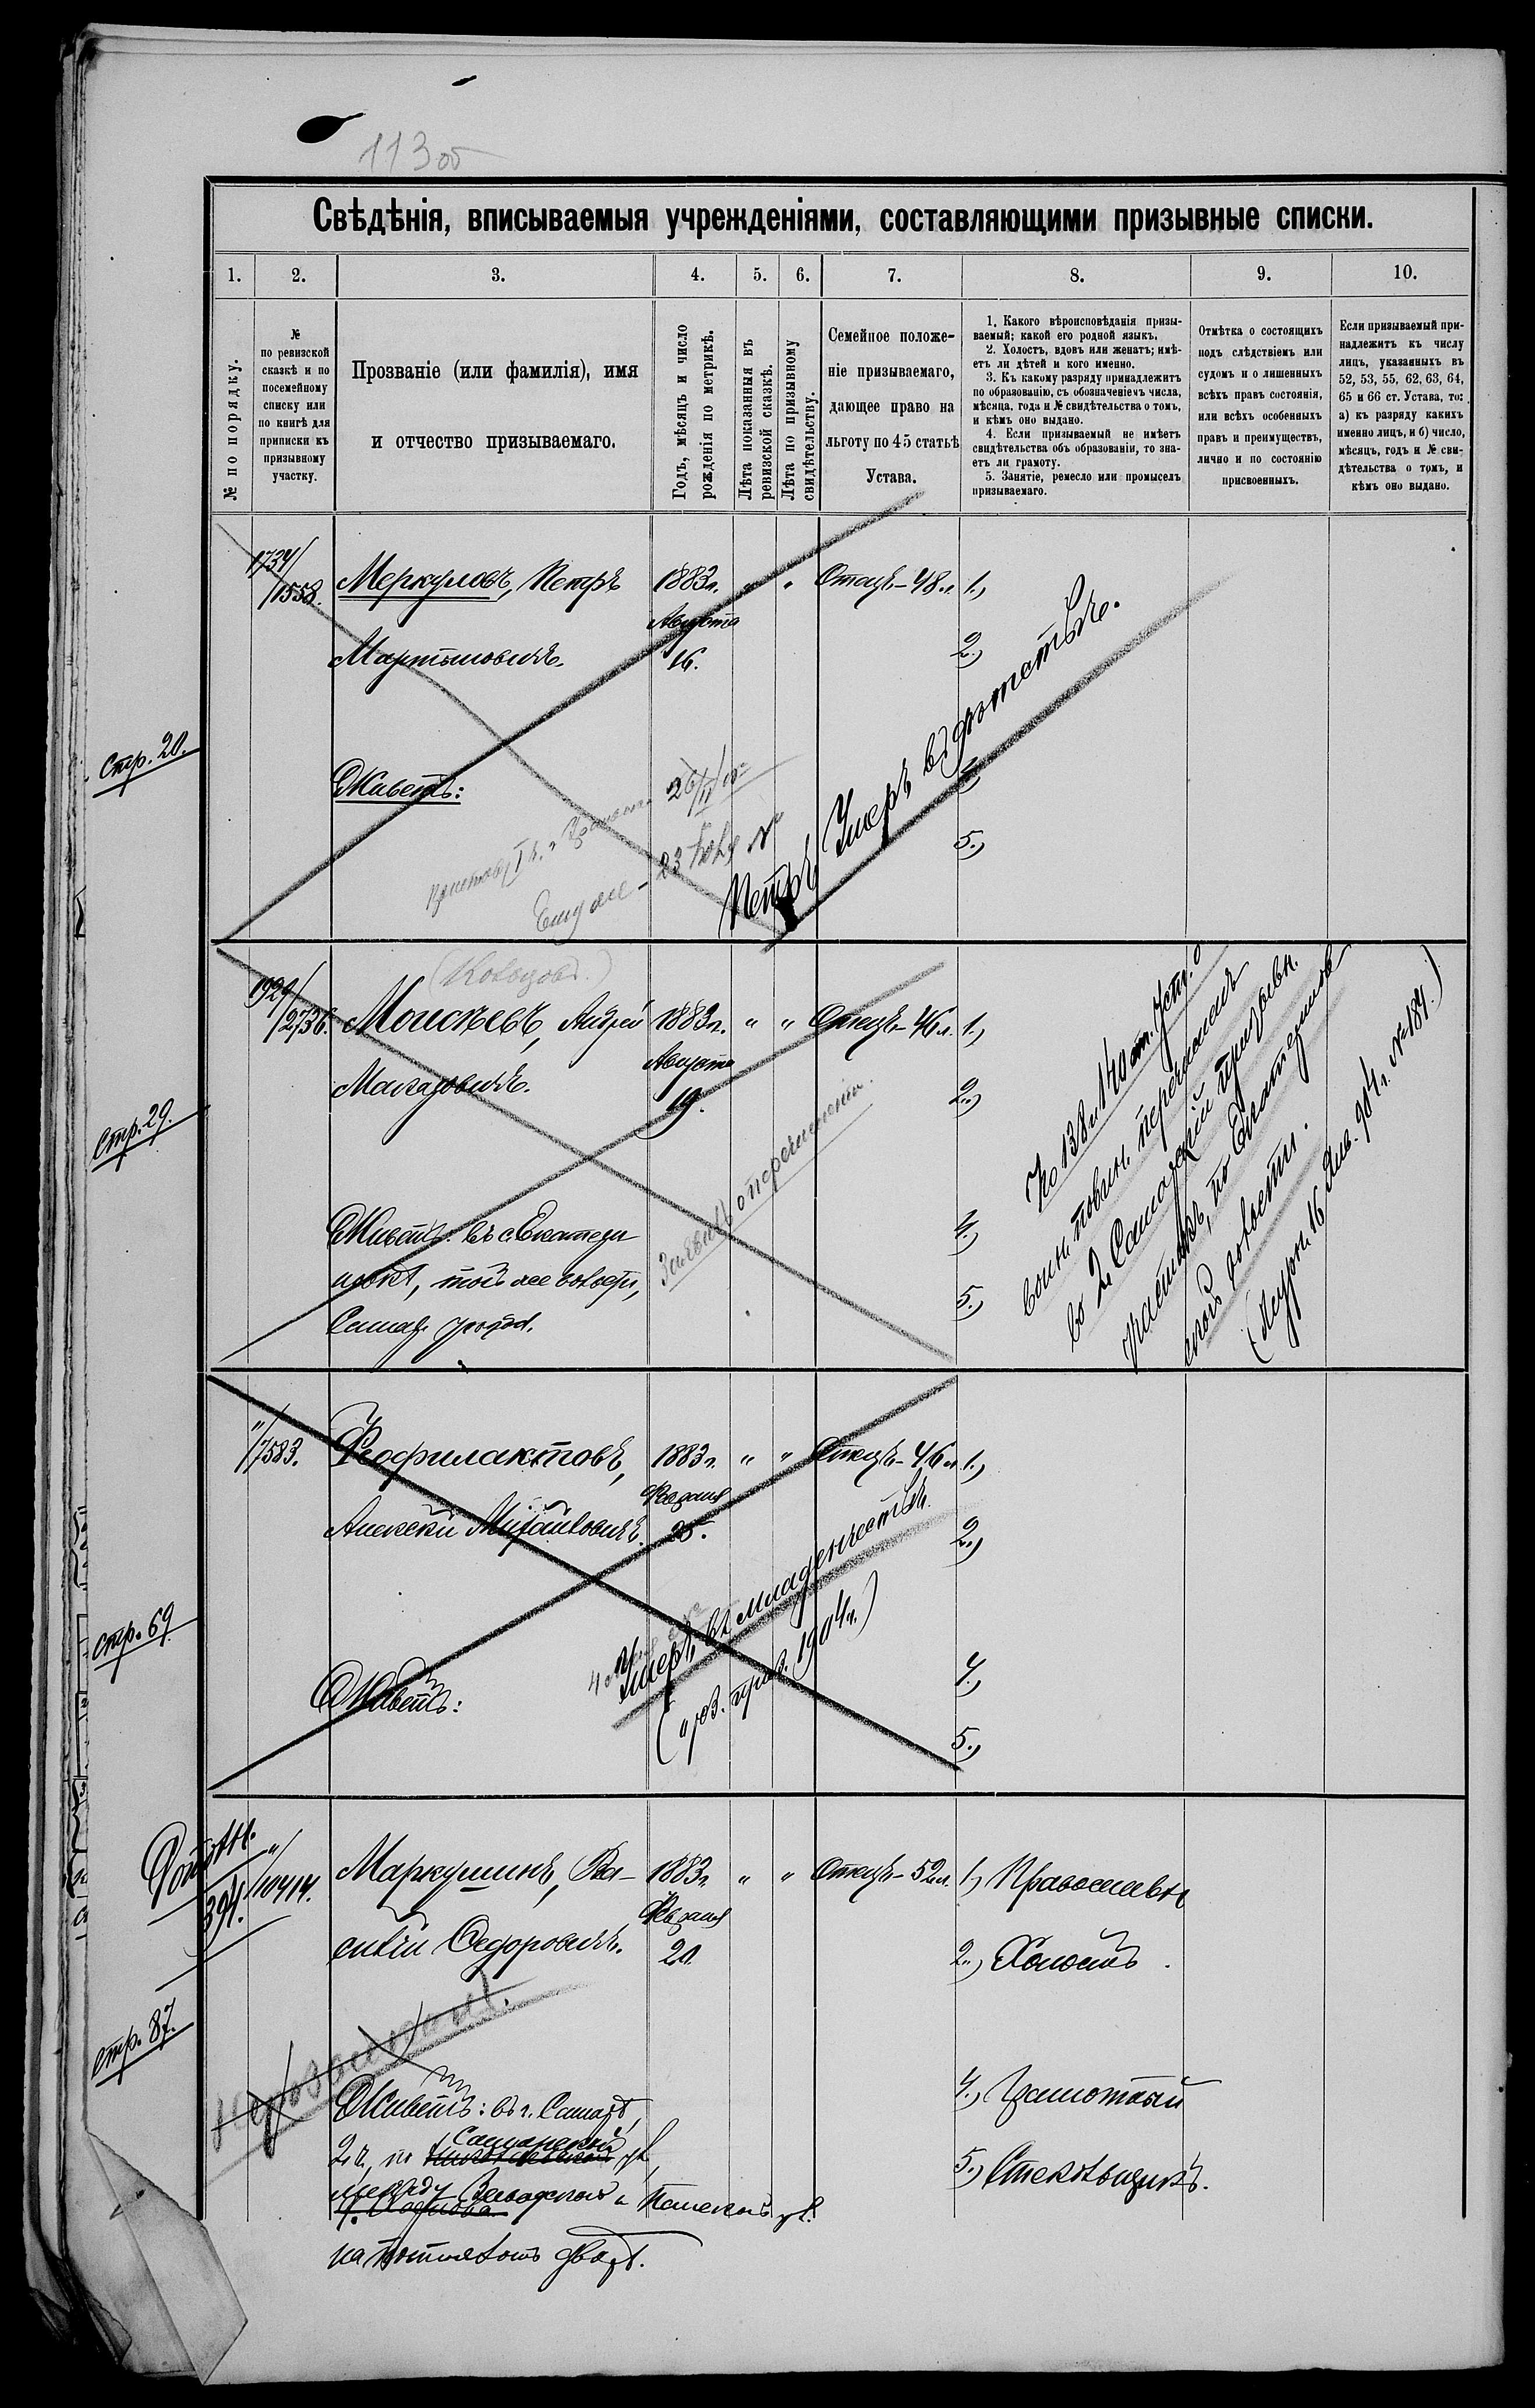 113 об
Свѣдѣнія, вписываемыя учрежденіями, составляющими призывные списки.
1. 2. 3. 4. 5. 6. 7. 8. 9. 10.
№ по порядку.
№
по ревизской
сказкѣ и по
посемейному
списку или
по книгѣ для
приписки къ
призывному
участку.
Прозваніе (или фамилія), имя
и отчество призываемаго.
Годъ, мѣсяцъ и число
рожденія по метрикѣ.
Лѣта показанныя въ
ревизской сказкѣ.
Лѣта по призывному
свидѣтельству.
Семейное положе-
ніе призываемаго,
дающее право на
льготу по 45 статьѣ
Устава.
1. Какого вѣроисповѣданія призы-
ваемый; какой его родной языкъ.
2. Холостъ, вдовъ или женатъ; имѣ-
етъ ли дѣтей и кого именно.
3. Къ какому разряду принадлежитъ
по образованію, съ обозначеніемъ числа,
мѣсяца, года и № свидѣтельства о томъ,
и кѣмъ оно выдано.
4. Если призываемый не имѣетъ
свидѣтельства объ образованіи, то зна-
етъ ли грамоту.
5. Занятіе, ремесло или промыселъ
призываемаго.
Отмѣтка о состоящихъ
подъ слѣдствіемъ или
судомъ и о лишенныхъ
всѣхъ правъ состоянія,
или всѣхъ особенныхъ
правъ и преимуществъ,
лично и по состоянію
присвоенныхъ.
Если призываемый при-
надлежитъ къ числу
лицъ, указанныхъ въ
52, 53, 55, 62, 63, 64,
65 и 66 ст. Устава, то:
а) къ разряду какихъ
именно лицъ, и б) число,
мѣсяцъ, годъ и № сви-
дѣтельства о томъ, и
кѣмъ оно выдано.
1734/
/1558. Меркуловъ, Петръ 1883г. " " Отецъ-48л. 1.,
Августа
Мартыновичъ. 16. 2.,
Стр. 20.
Живетъ: 26/II
5.,
Еще же - 23
Петръ Умеръ въ дѣтствѣ.
1929/
/2736. Моисѣевъ, Андрей 1883г. " " Отецъ-46л. 1.,
Августа
19. 2.,
Стр. 29.
Живетъ: въ с. Екатери 4.,
новкѣ, той же волости, 5.,
Самар. уѣзда.
Заявилъ о перечисленіи.
По 138 и 140 ст. Уст. о
воин. повин. перечисленъ
во 2 Самарскій призывн.
участокъ, по Екатеринов
ской волости.
(Журн. 16 Янв. 904г. № 184.)
"/
/7583. Феофилактовъ, 1883г. " " Отецъ-46л. 1.,
Февраля
Алексѣй Михайловичъ. 25. 2.,
Стр. 69.
Живетъ: 4.,
5.,
Умеръ въ младенчествѣ.
1904г.)
"/
394. /10414. Маркушинъ, Ва- 1883г. " " Отецъ-52л. 1., Православн
Февраля
силій Федоровичъ. 20. 2., Холостъ.
Стр. 87.
Живетъ: въ г. Самарѣ, 4., Грамотный
Самарской
2 ч., по ул, 5., Стекольщикъ.
между Заводской и ул.
на дворѣ.